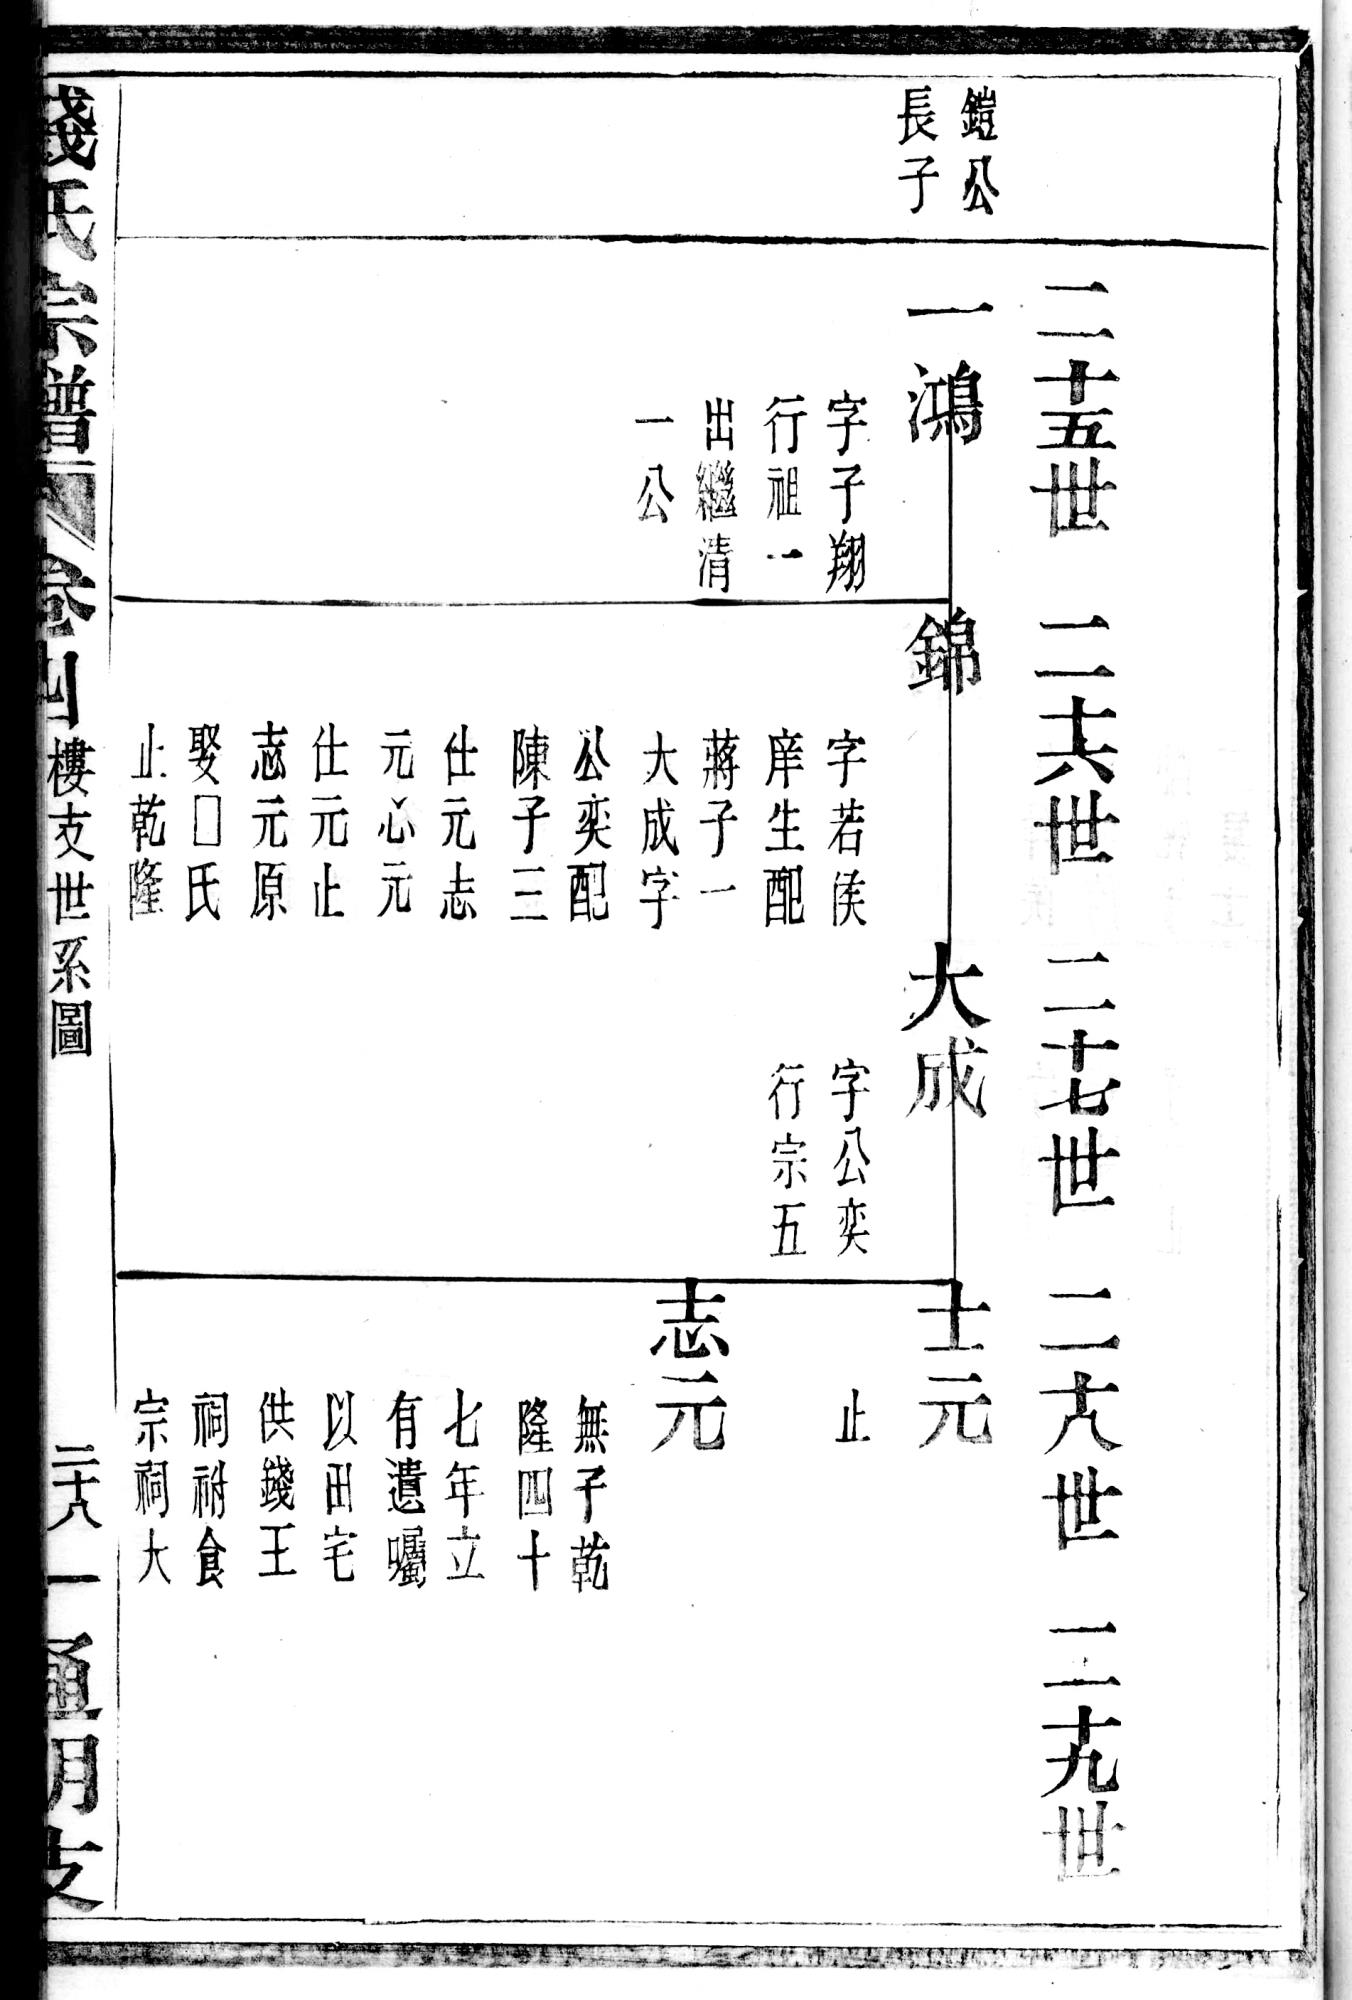 鎧公
長子
二十五世
二十六世
二十七世
二十八世
二十九世
一鴻
字子翔
行祖一
出繼清
一公
錦
字若侯
庠生配
蔣子一
大成字
公奕配
陳子三
仕元志
元心元
仕元止
志元原
娶□氏
止乾隆
大成
字公奕
行宗五
士元
止
志元
無子乾
隆四十
七年立
有遺囑
以田宅
供錢王
祠祔食
宗祠大
錢氏宗譜
卷四
樓支世系圖
二十八
一
通明支